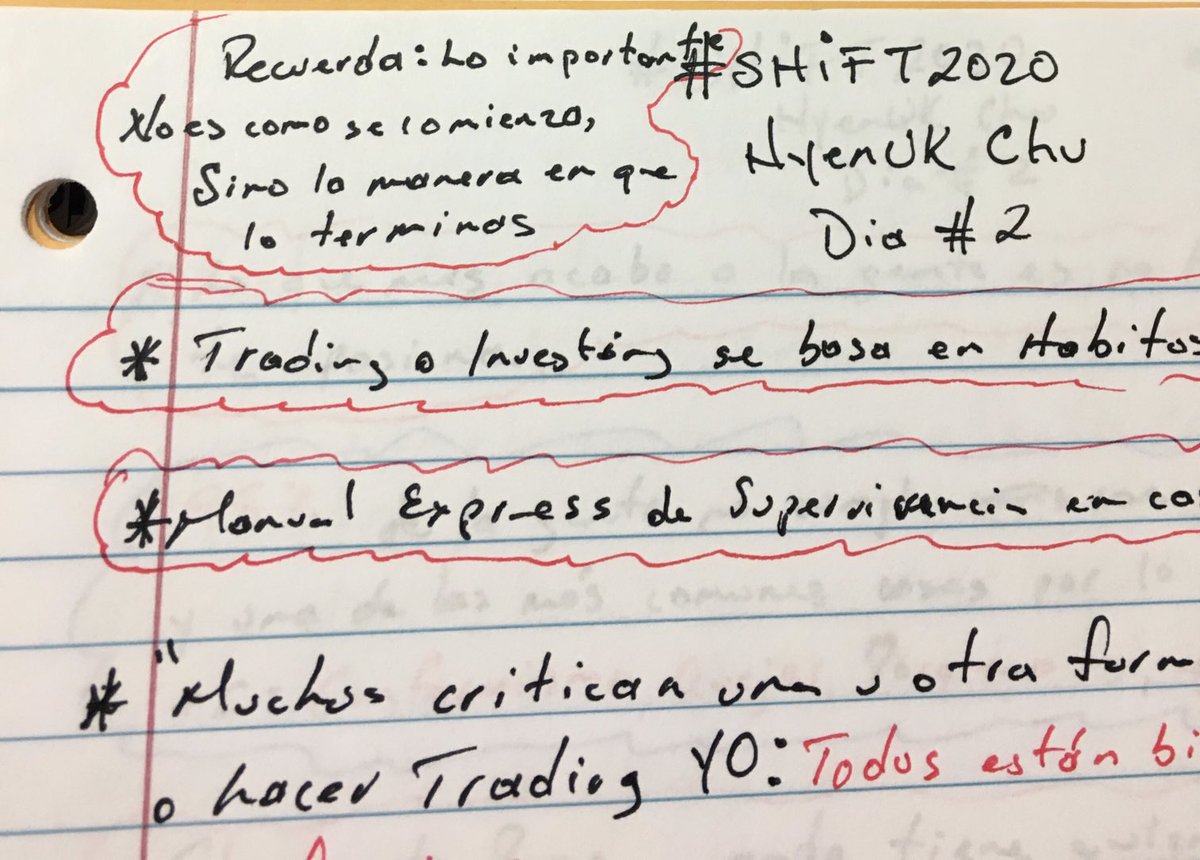 Recuerda: Lo importante
No es como se comienza,
Sino la manera en que
lo terminas
#SHiFT2020
HyenUK Chu
Dia #2
* Trading o Investing se basa en Habitos
* Manual Express de Supervivencia en
* "Muchos critican una u otra form
o hacer Trading YO: Todos están bi